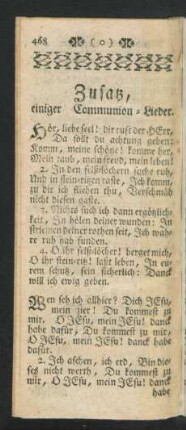 468 (0)
Zusatz,
einiger Communion-Lieder.
Hör, liebe seel! dir ruft der HErr,
Da sollt du achtung geben:
Komm, meine schöne! komme her,
Mein taub, mein freud, mein leben!
2. In den felßlöchern suche ruh,
Und in steinritzen raste, Ich komm,
zu dir ich fliehen thu, Verschmäh
nicht diesen gaste.
3. Nichts such ich dann ergötzlich-
keit, In hölen deiner wunden: In
striemen deiner rothen seit, Ich wah-
re ruh hab funden.
4. O ihr felßlöcher! berget mich,
O ihr stein-riß! last leben In eu-
rem schutz, sein sicherlich: Danck
will ich ewig geben.
Wen seh ich allhier? Dich JEsu,
mein zier! Du kommest zu
mir, O JEsu, mein JEsu! danck
habe dafür, Du kommest zu mir,
O JEsu, mein JEsu! danck habe
dafür.
2. Ich aschen, ich erd, Bin die-
ses nicht werth, Du kommest zu
mir, O JEsu, mein JEsu! danck
habe